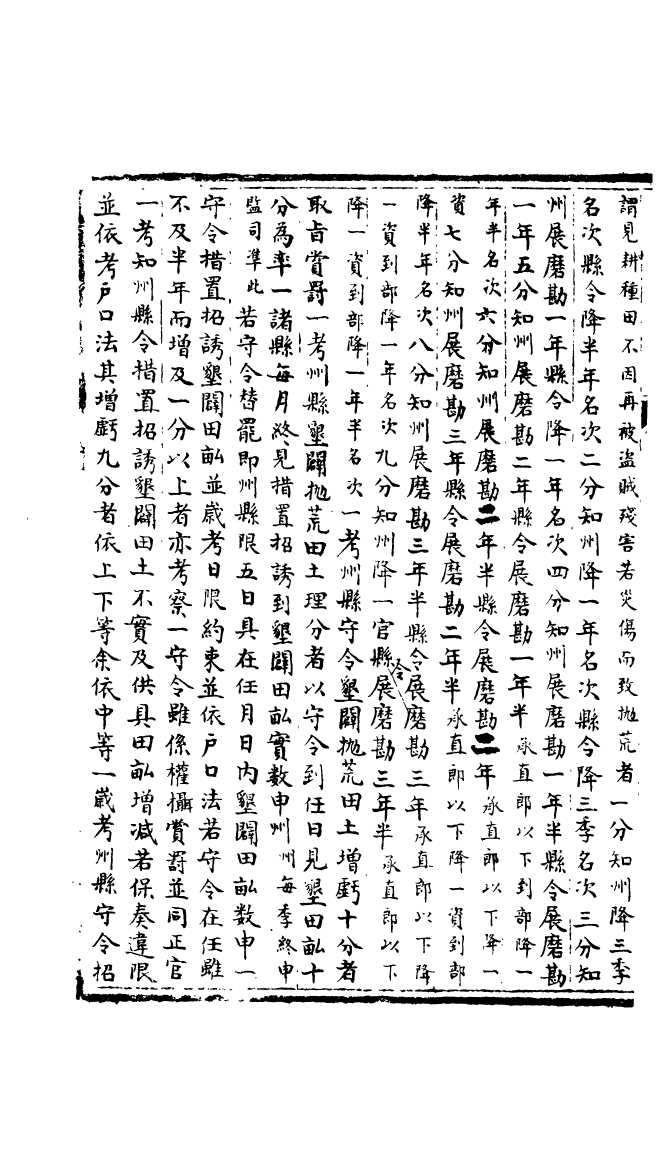 謂見耕種田不因再被盜賊殘害若災傷而致抛荒者一分知州降三季
名次縣令降半年名次二分知州降一年名次縣令降三季名次三分知
州展磨勘一年縣令降一年名次四分知州展磨勘一年半縣令展磨勘
一年五分知州展磨勘二年縣令展磨勘一年半承直郎以下到部降一
年半名次六分知州展磨勘二年半縣令展磨勘二年承直郎以下降一
資七分知州展磨勘三年縣令展磨勘二年半承直郎以下降一資到部
降半年名次八分知州展磨勘三年半縣令展磨勘三年承直郎以下降
一資到部降一年名次九分知州降一官縣令展磨勘三年半承直郎以下
降一資到部降一年半名次一考州縣守令墾闢抛荒田土增虧十分者
取旨賞罸一考州縣墾闢抛荒田土理分者以守令到任日見墾田畝十
分為率一諸縣每月終見措置招誘到墾闢田畝實數申州州每季終申
監司準此若守令替罷即州縣限五日具在任月日内墾闢田畝数申一
守令措置招誘墾闢田畝並歲考日限約束並依戶口法若守令在任雖
不及半年而增及一分以上者亦考察一守令雖係權攝賞罸並同正官
一考知州縣令措置招誘墾闢田土不實及供具田畝增減若保奏違限
並依考戶口法其增虧九分者依上下等余依中等一歲考州縣守令招